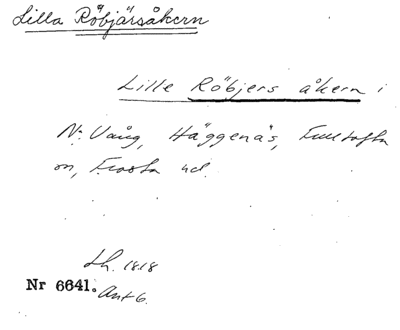 Lilla Röbjärsåkern
Lille Röbjers åkern i
N: Vång, Häggenäs, Fulltofta
sn, Frosta hd.
Lh. 1818
Nr 6641. Akt 6.